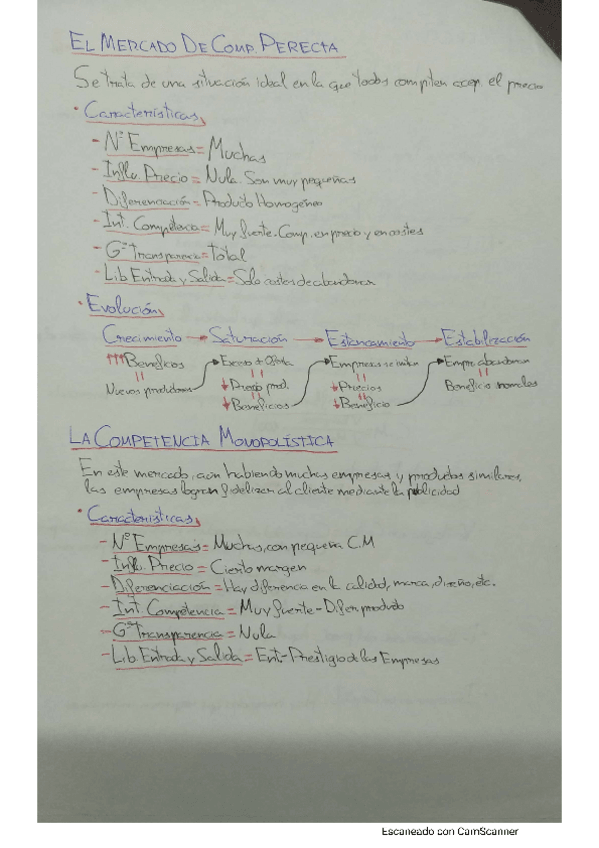 EL MERCADO DE COMP. PERECTA
Se trata de una situación ideal en la que todos compiten el precio
· Características
- Nº Empresas = Muchas
- Influ. Precio = Nula. Son muy pequeñas
- Diferenciación = Producto Homogéneo
- Int. Competencia = Muy fuerte. Comp. en precio y en costes
- Gº Transparencia = Total
- Lib. Entrada y Salida = Solo costes de abandonar
· Evolución
Crecimiento → Saturación → Estancamiento → Establización
↑↑↑ Beneficos Exceso + Oferta Empresas se Empre. abandonan
Nuevos productores ↓ Precio prod. ↓ Precios Beneficio normales
↓ Beneficios ↓ Beneficio
LA COMPETENCIA MONOPOLÍSTICA
En este mercado, aún habiendo muchas empresas, y productos similares,
las empresas logran fidelizar al cliente mediante la publicidad
· Caracteristicas
- Nº Empresas = Muchas, con pequeña C.M
- Influ. Precio = Cierto margen
- Diferenciación = Hay diferencia en la calidad, marca, diseño, etc.
- Int. Competencia = Muy fuerte - Difer. producto
- Gº Transparencia = Nula
- Lib. Entrada y Salida = Ent - Prestigio de las Empresas
Escaneado con CamScanner